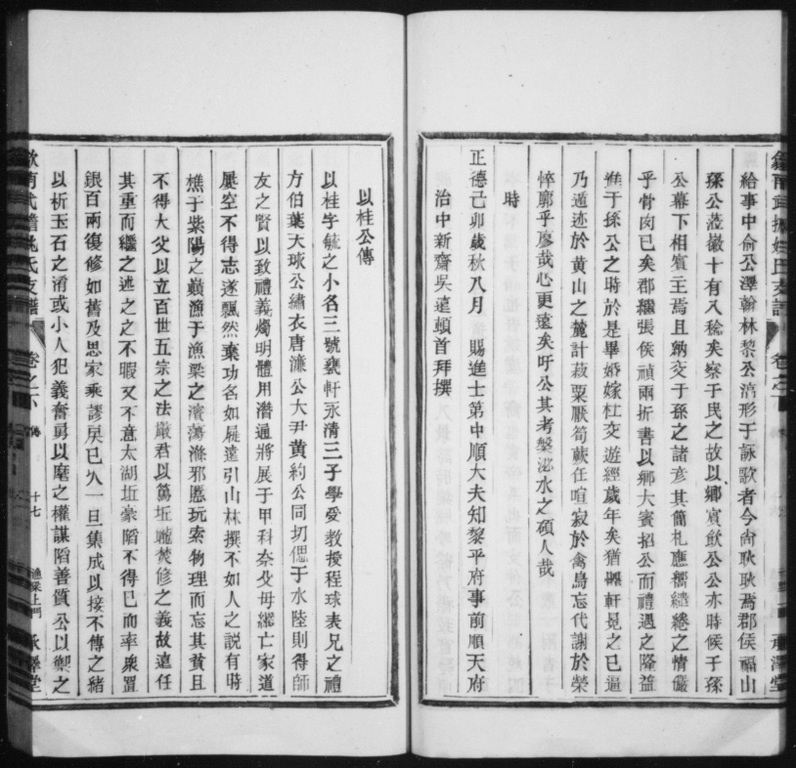 給事中俞公澤翰林黎公涫形于詠歌者今尙耿耿焉郡侯福山
孫公蒞撤十有入稔矣察于民之故以鄉賓飲公公亦時候于孫
公幕下相賓王焉且納交于孫之諸彥其簡札應穪繾綣之情儼
乎骨肉已矣郡繼張侯禎兩折書以鄉大賓招公而禮遇之隆益
進于孫公之時於是畢婚嫁杜交遊經歲年矣猶羈軒晃之已逼
乃遁迹於黄山之麓計菽粟厭筍蕨任喧寂於禽鳥忘代謝於榮
悴廓乎廖哉心更遠矣吁公其考槃泌水之碩人哉
時
正德己卯歲秋八月 賜進士第中順大夫知黎平府事前順天府
治中新齋吳遠頓首拜撰
以桂公傳
以桂字毓之小名三號甕軒永清三子學爰教授程球表兄之禮
方伯葉天球公繡衣唐濂公大尹黄約公同切偲于水陸則得師
友之賢以致禮義燭明體用潛通將展于甲科奈父母繼亡家道
屢空不得志遂飄然棄功名如屣遠引山林撰不如人之説有時
樵于紫陽之巔漁于漁梁之濱蕩滌邪慝玩索物理而忘其貧且
不得大父以立百世五宗之法嚴君以篤坵壠焚修之義故遠任
其重而繼之述之之不暇又不意太湖坵豪陷不得巳而率衆置
銀百兩復修如舊及思家乘謬戾已久一旦集成以接不傳之緒
以析玉石之淆或小人犯義奮勇以麾之權謀陷善質公以禦之
歙南武擔姚氏支譜 卷之 傳 十七 漁梁上門 承澤堂